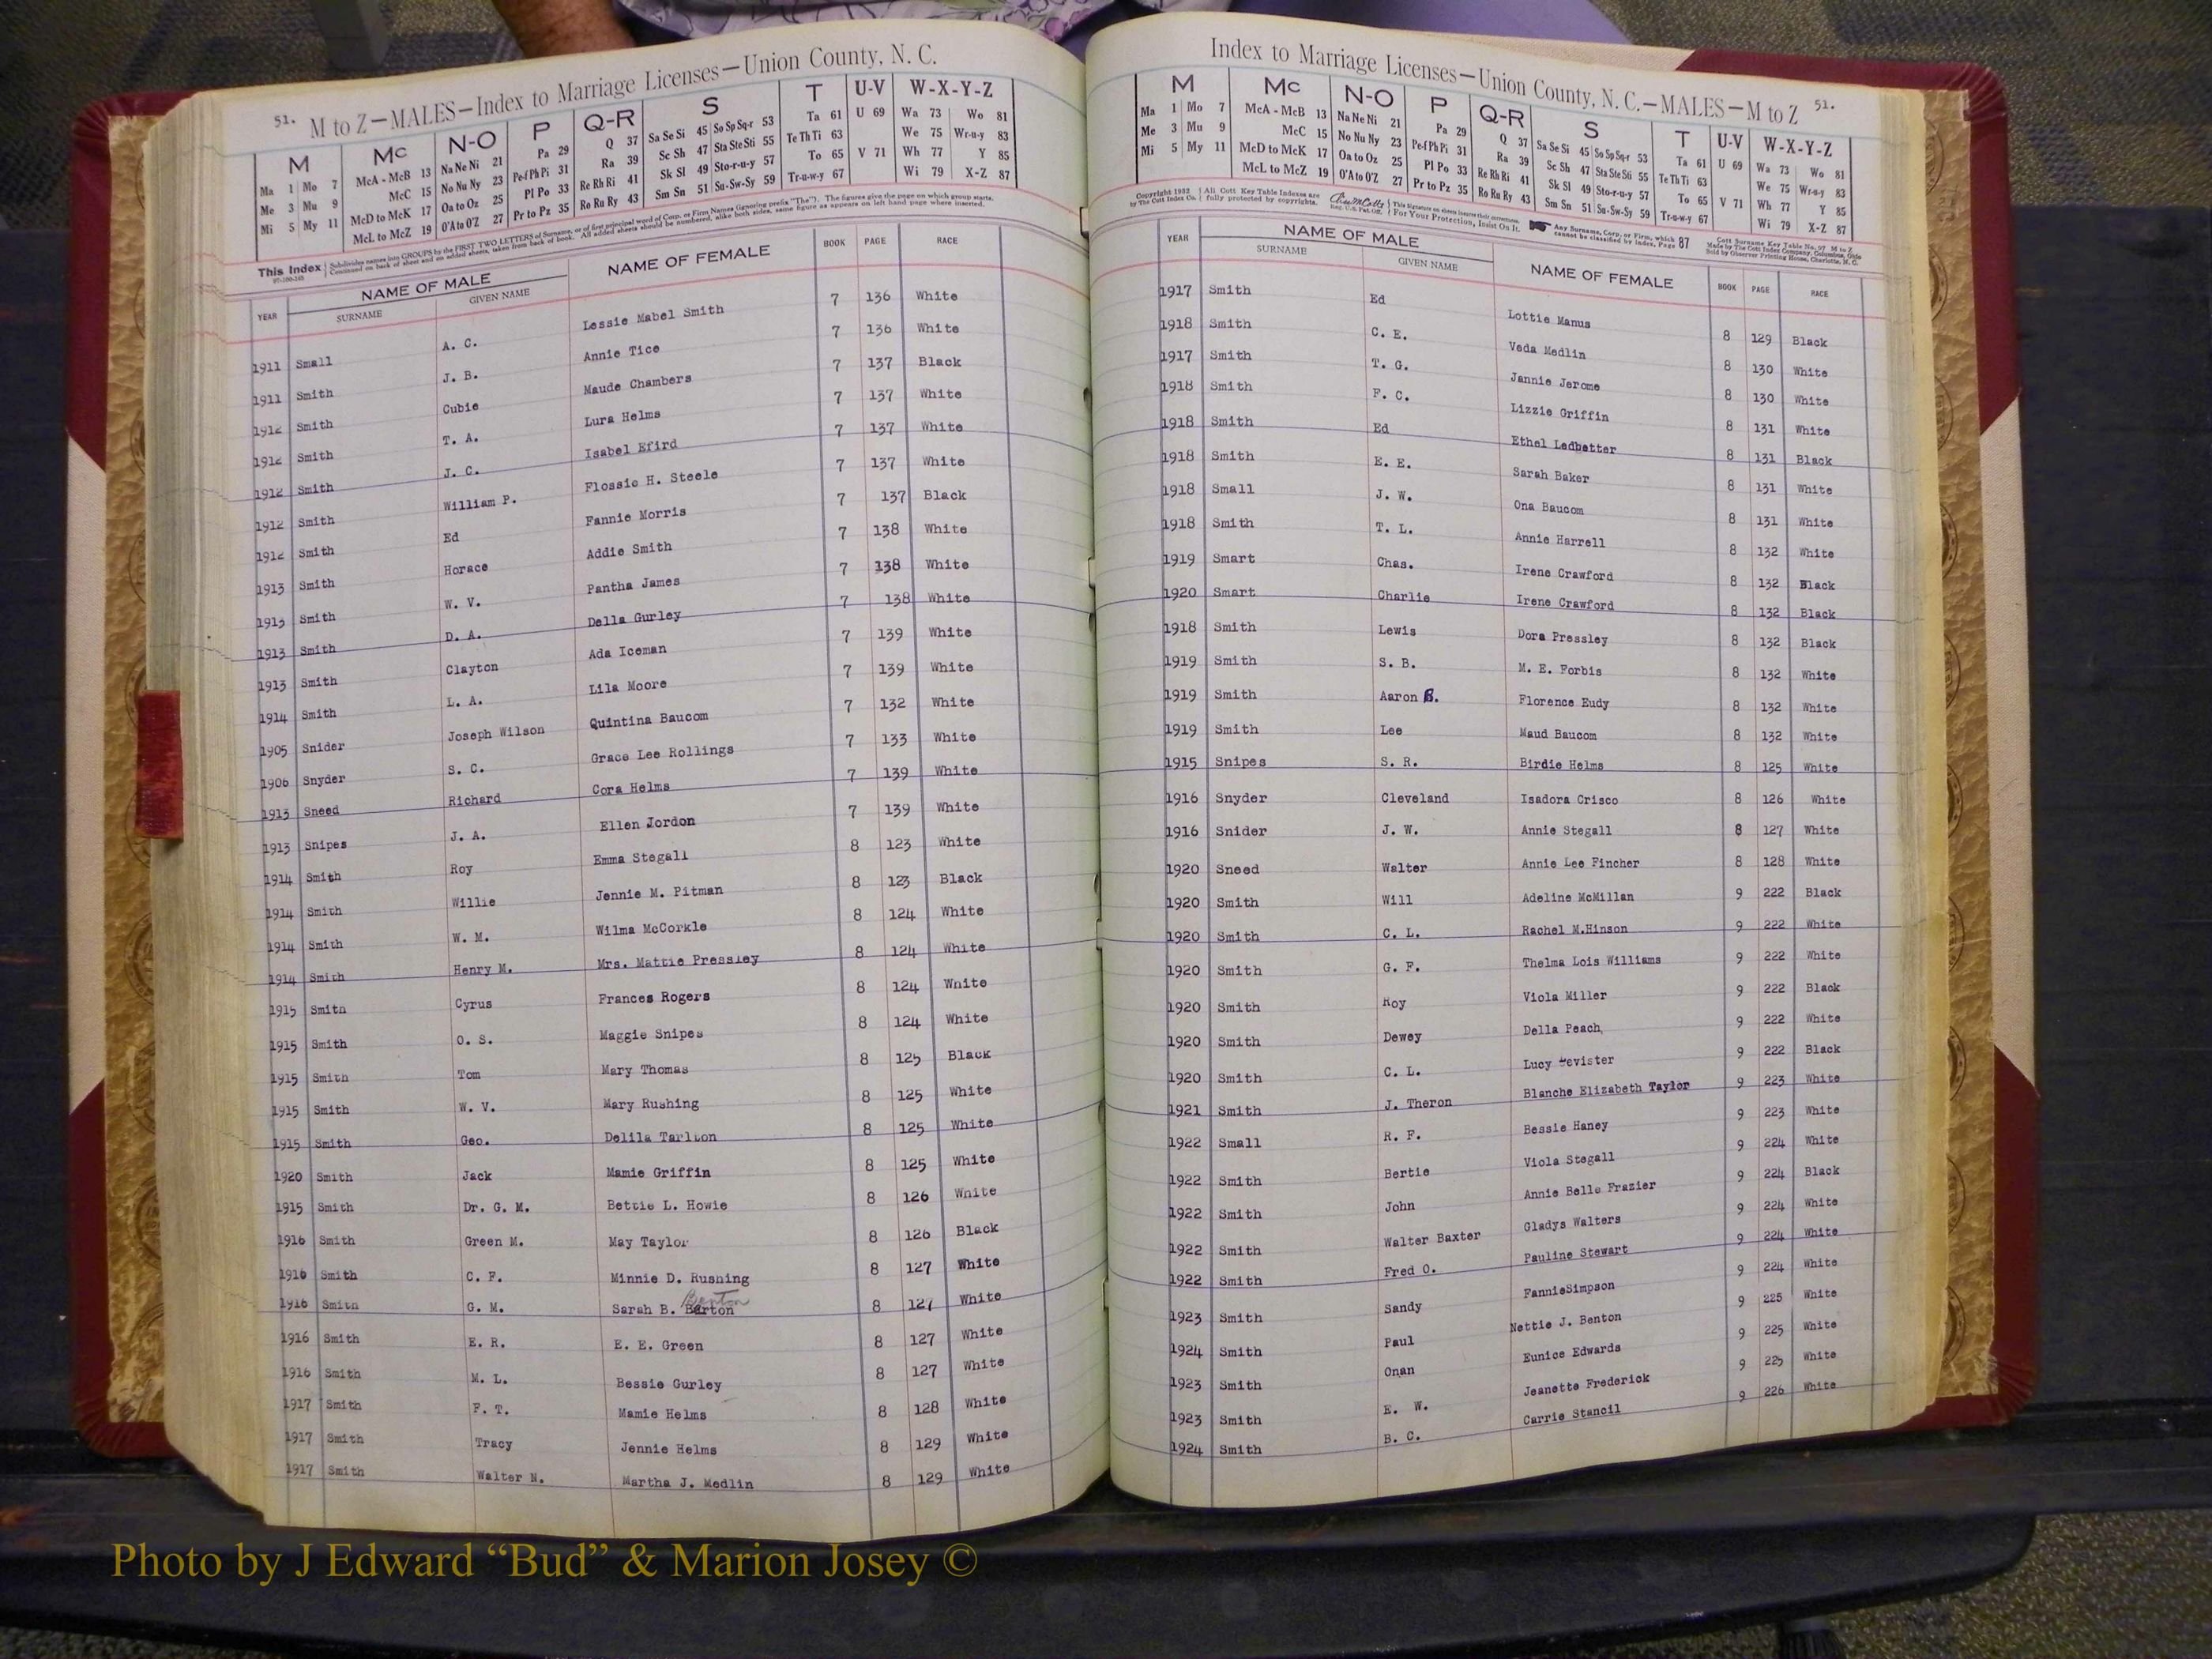 51. M to Z—MALES—Index to Marriage Licenses—Union County, N. C.
M Mc N-O P Q-R S T U-V W-X-Y-Z
Ma 1 Mo 7 McA - McB 13 Na Ne Ni 21 Pa 29 Q 37 Sa Se Si 45 So Sp Sq-r 53 Ta 61 U 69 Wa 73 Wo 81
Me 3 Mu 9 McC 15 No Nu Ny 23 Pe-f Ph Pi 31 Ra 39 Sc Sh 47 Sta Ste Sti 55 Te Th Ti 63 We 75 Wr-u-y 83
Mi 5 My 11 McD to McK 17 Oa to Oz 25 Pl Po 33 Re Rh Ri 41 Sk Sl 49 Sto-r-u-y 57 To 65 V 71 Wh 77 Y 85
McL to McZ 19 O'A to O'Z 27 Pr to Pz 35 Ro Ru Ry 43 Sm Sn 51 Su-Sw-Sy 59 Tr-u-w-y 67 Wi 79 X-Z 87
This Index Subdivides names into GROUPS by the FIRST TWO LETTERS of Surname, or of first principal word of Corp. or Firm Names (Ignoring prefix "The"). The figures give the page on which group starts.
Continued on back of sheet and on added sheets, taken from back of book. All added sheets should be numbered, alike both sides, same figure as appears on left hand page where inserted.
YEAR NAME OF MALE SURNAME GIVEN NAME NAME OF FEMALE BOOK PAGE RACE
1911 Small A. C. Lessie Mabel Smith 7 136 White
1911 Smith J. B. Annie Tice 7 136 White
1912 Smith Cubie Maude Chambers 7 137 Black
1912 Smith T. A. Lura Helms 7 137 White
1912 Smith J. C. Isabel Efird 7 137 White
1912 Smith William P. Flossie H. Steele 7 137 White
1912 Smith Ed Fannie Morris 7 137 Black
1913 Smith Horace Addie Smith 7 138 White
1913 Smith W. V. Pantha James 7 138 White
1913 Smith D. A. Della Gurley 7 138 White
1913 Smith Clayton Ada Iceman 7 139 White
1914 Smith L. A. Lila Moore 7 139 White
1905 Snider Joseph Wilson Quintina Baucom 7 132 White
1906 Snyder S. C. Grace Lee Rollings 7 133 White
1913 Sneed Richard Cora Helms 7 139 White
1913 Snipes J. A. Ellen Jordon 7 139 White
1914 Smith Roy Emma Stegall 8 123 White
1914 Smith Willie Jennie M. Pitman 8 123 Black
1914 Smith W. M. Wilma McCorkle 8 124 White
1914 Smith Henry M. Mrs. Mattie Pressley 8 124 White
1915 Smith Cyrus Frances Rogers 8 124 White
1915 Smith O. S. Maggie Snipes 8 124 White
1915 Smith Tom Mary Thomas 8 125 Black
1915 Smith W. V. Mary Rushing 8 125 White
1915 Smith Geo. Delila Tarlton 8 125 White
1920 Smith Jack Mamie Griffin 8 125 White
1915 Smith Dr. G. M. Bettie L. Howie 8 126 White
1916 Smith Green M. May Taylor 8 126 Black
1916 Smith C. F. Minnie D. Rushing 8 127 White
1916 Smith G. M. Sarah B. Barton Benton 8 127 White
1916 Smith E. R. E. E. Green 8 127 White
1916 Smith M. L. Bessie Gurley 8 127 White
1917 Smith F. T. Mamie Helms 8 128 White
1917 Smith Tracy Jennie Helms 8 129 White
1917 Smith Walter N. Martha J. Medlin 8 129 White
Index to Marriage Licenses—Union County, N. C.—MALES—M to Z 51.
M Mc N-O P Q-R S T U-V W-X-Y-Z
Ma 1 Mo 7 McA - McB 13 Na Ne Ni 21 Pa 29 Q 37 Sa Se Si 45 So Sp Sq-r 53 Ta 61 U 69 Wa 73 Wo 81
Me 3 Mu 9 McC 15 No Nu Ny 23 Pe-f Ph Pi 31 Ra 39 Sc Sh 47 Sta Ste Sti 55 Te Th Ti 63 We 75 Wr-u-y 83
Mi 5 My 11 McD to McK 17 Oa to Oz 25 Pl Po 33 Re Rh Ri 41 Sk Sl 49 Sto-r-u-y 57 To 65 V 71 Wh 77 Y 85
McL to McZ 19 O'A to O'Z 27 Pr to Pz 35 Ro Ru Ry 43 Sm Sn 51 Su-Sw-Sy 59 Tr-u-w-y 67 Wi 79 X-Z 87
Copyright 1932 by The Cott Index Co. All Cott Key Table Indexes are fully protected by copyrights. Reg. U.S. Pat. Off. This signature on sheets insures their correctness. For Your Protection, Insist On It. Any Surname, Corp. or Firm, which cannot be classified by index, Page 87
Cott Surname Key Table No. 97 M to Z Made by The Cott Index Company, Columbus, Ohio Sold by Observer Printing House, Charlotte, N. C.
YEAR NAME OF MALE SURNAME GIVEN NAME NAME OF FEMALE BOOK PAGE RACE
1917 Smith Ed Lottie Manus 8 129 Black
1918 Smith C. E. Veda Medlin 8 130 White
1917 Smith T. G. Jannie Jerome 8 130 White
1918 Smith F. C. Lizzie Griffin 8 131 White
1918 Smith Ed Ethel Ledbetter 8 131 Black
1918 Smith E. E. Sarah Baker 8 131 White
1918 Small J. W. Ona Baucom 8 131 White
1918 Smith T. L. Annie Harrell 8 132 White
1919 Smart Chas. Irene Crawford 8 132 Black
1920 Smart Charlie Irene Crawford 8 132 Black
1918 Smith Lewis Dora Pressley 8 132 Black
1919 Smith S. B. M. E. Forbis 8 132 White
1919 Smith Aaron B. Florence Eudy 8 132 White
1919 Smith Lee Maud Baucom 8 132 White
1915 Snipes S. R. Birdie Helms 8 125 White
1916 Snyder Cleveland Isadora Crisco 8 126 White
1916 Snider J. W. Annie Stegall 8 127 White
1920 Sneed Walter Annie Lee Fincher 8 128 White
1920 Smith Will Adeline McMillan 9 222 Black
1920 Smith C. L. Rachel M.Hinson 9 222 White
1920 Smith G. F. Thelma Lois Williams 9 222 White
1920 Smith Roy Viola Miller 9 222 Black
1920 Smith Dewey Della Peach, 9 222 White
1920 Smith C. L. Lucy 9 222 Black
1921 Smith J. Theron Blanche Elizabeth Taylor 9 223 White
1922 Small R. F. Bessie Haney 9 223 White
1922 Smith Bertie Viola Stegall 9 224 White
1922 Smith John Annie Belle Frazier 9 224 Black
1922 Smith Walter Baxter Gladys Walters 9 224 White
1922 Smith Fred O. Pauline Stewart 9 224 White
1923 Smith Sandy FannieSimpson 9 224 White
1924 Smith Paul Nettie J. Benton 9 225 White
1923 Smith Onan Eunice Edwards 9 225 White
1923 Smith E. W. Jeanette Frederick 9 225 White
1924 Smith B. C. Carrie Stancil 9 226 White
Photo by J Edward “Bud” & Marion Josey ©